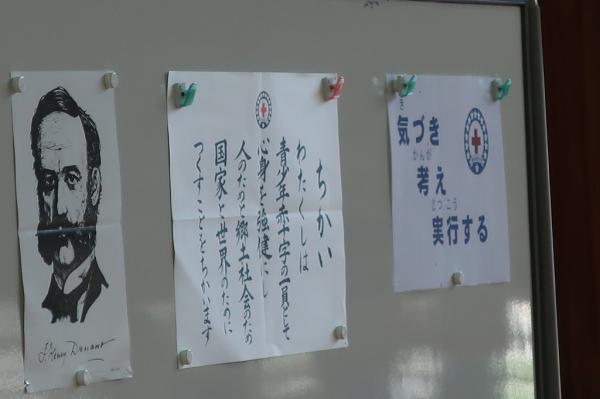 J. Henry Dunant
ちかい
わたくしは
青少年赤十字の一員として
心身を強健にし
人のためと郷土社会のため
国家と世界のために
つくすことをちかいます
き
気づき
かんが
考え
じっこう
実行する